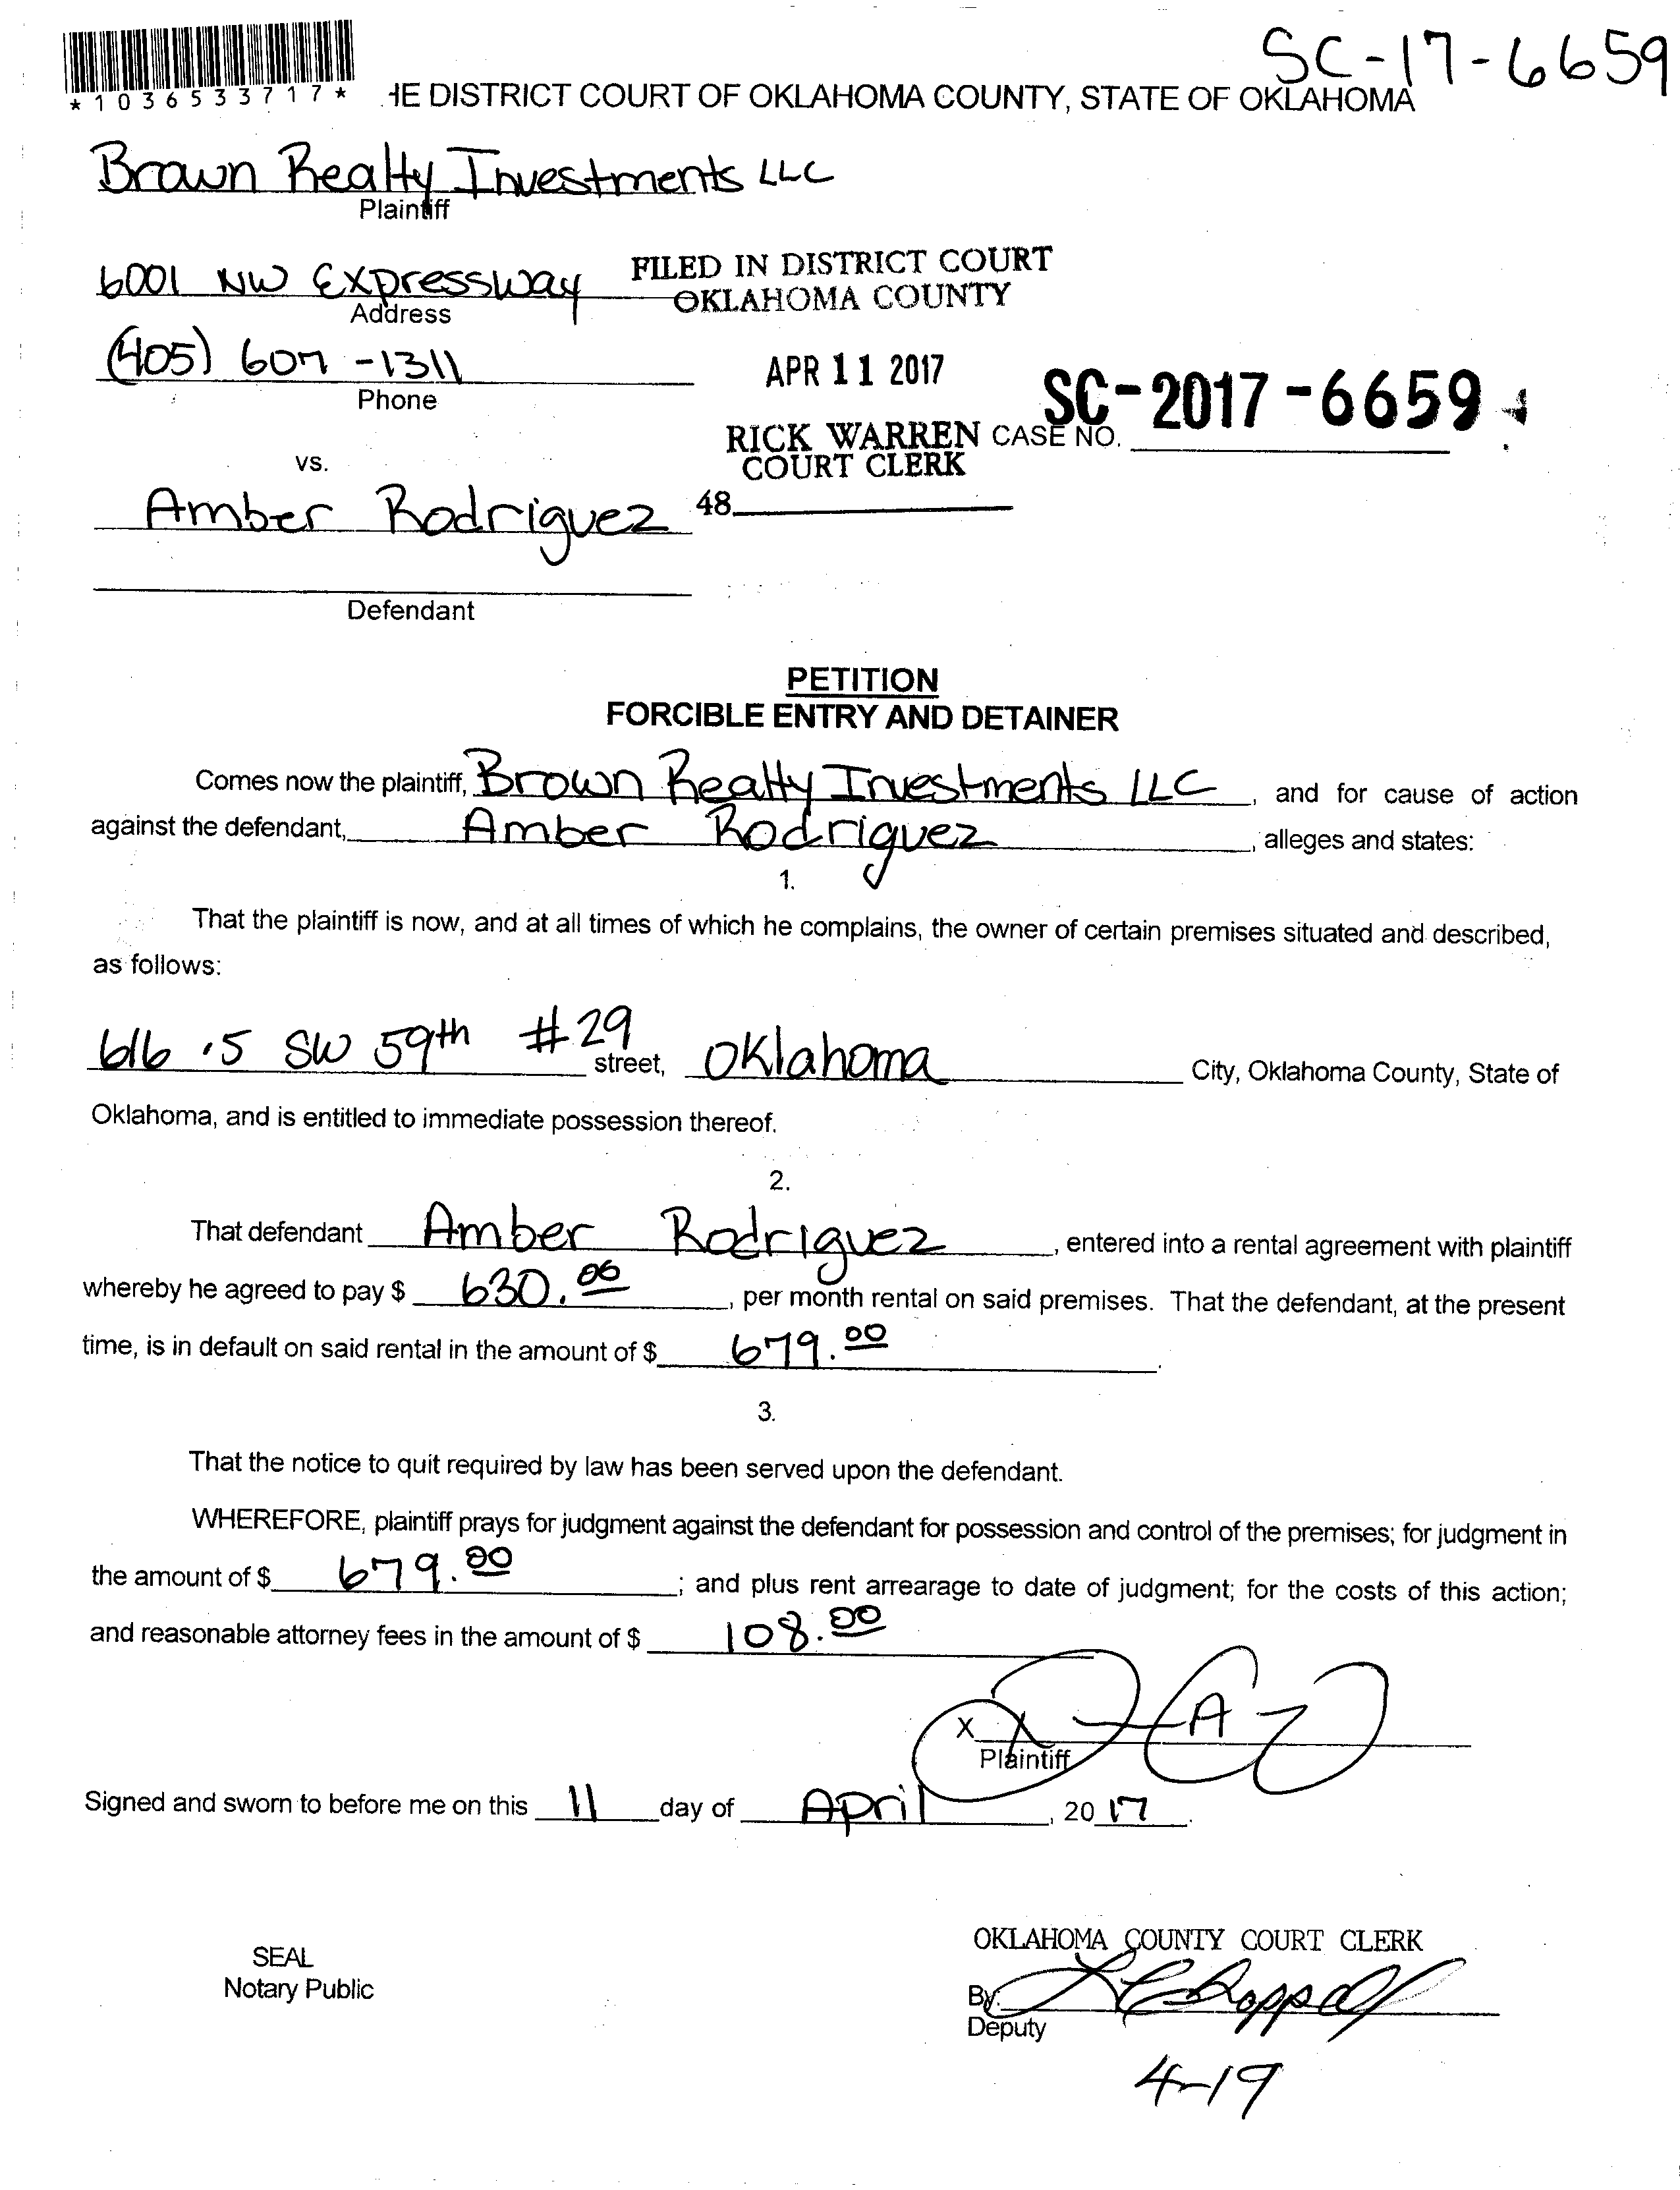 SC-17-6659
*1036533717* HE DISTRICT COURT OF OKLAHOMA COUNTY, STATE OF OKLAHOMA
Brown Realty Investments LLC
Plaintiff
6001 NW Expressway
Address
FILED IN DISTRICT COURT
OKLAHOMA COUNTY
(405) 607-1311
Phone
APR 11 2017
SC-2017-6659
RICK WARREN CASE NO.
COURT CLERK
vs.
48
Amber Rodriguez
Defendant
PETITION
FORCIBLE ENTRY AND DETAINER
Comes now the plaintiff, Brown Realty Investments LLC, and for cause of action
against the defendant, Amber Rodriguez, alleges and states:
1.
That the plaintiff is now, and at all times of which he complains, the owner of certain premises situated and described,
as follows:
616 .5 SW 59th #29 street, Oklahoma City, Oklahoma County, State of
Oklahoma, and is entitled to immediate possession thereof.
2.
That defendant Amber Rodriguez, entered into a rental agreement with plaintiff
whereby he agreed to pay $ 630.00, per month rental on said premises. That the defendant, at the present
time, is in default on said rental in the amount of $ 679.00.
3.
That the notice to quit required by law has been served upon the defendant.
WHEREFORE, plaintiff prays for judgment against the defendant for possession and control of the premises; for judgment in
the amount of $ 679.00; and plus rent arrearage to date of judgment; for the costs of this action;
and reasonable attorney fees in the amount of $ 108.00
X
Plaintiff
Signed and sworn to before me on this 11 day of April, 2017.
SEAL
Notary Public
OKLAHOMA COUNTY COURT CLERK
By:
Deputy
4-19